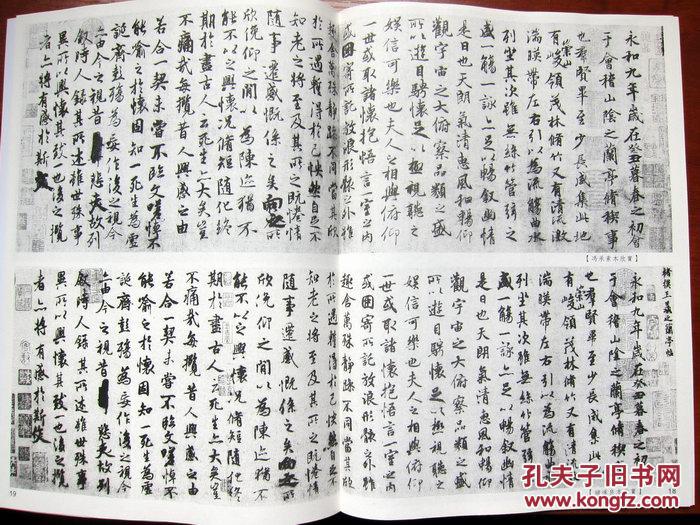 永和九年歲在癸丑暮春之初會
于會稽山陰之蘭亭脩稧事
也羣賢畢至少長咸集此地
有崇山峻領茂林脩竹又有清流激
湍暎帶左右引以為流觴曲水
列坐其次雖無絲竹管弦之
盛一觴一詠亦足以暢敘幽情
是日也天朗氣清惠風和暢仰
觀宇宙之大俯察品類之盛
所以遊目騁懷足以極視聽之
娛信可樂也夫人之相與俯仰
一世或取諸懷抱悟言一室之內
或因寄所託放浪形骸之外雖
趣舍萬殊靜躁不同當其欣
於所遇蹔得於己怏然自足不
知老之將至及其所之既惓情
隨事遷感慨係之矣向之所
欣俛仰之間以為陳迹猶不
能不以之興懷況脩短隨化終
期於盡古人云死生亦大矣豈
不痛哉每攬昔人興感之由
若合一契未嘗不臨文嗟悼不
能喻之於懷固知一死生為虛
誕齊彭殤為妄作後之視今
亦由今之視昔悲夫故列
敘時人錄其所述雖世殊事
異所以興懷其致一也後之攬
者亦將有感於斯文
【馮承素本欣賞】
褚摸王羲之蘭亭帖
永和九年歲在癸丑暮春之初會
于會稽山陰之蘭亭脩稧事
也羣賢畢至少長咸集此地
有崇山峻領茂林脩竹又有清流激
湍暎帶左右引以為流觴曲水
列坐其次雖無絲竹管弦之
盛一觴一詠亦足以暢敘幽情
是日也天朗氣清惠風和暢仰
觀宇宙之大俯察品類之盛
所以遊目騁懷足以極視聽之
娛信可樂也夫人之相與俯仰
一世或取諸懷抱悟言一室之內
或因寄所託放浪形骸之外雖
趣舍萬殊靜躁不同當其欣
於所遇蹔得於己怏然自足不
知老之將至及其所之既惓情
隨事遷感慨係之矣向之所
欣俛仰之間以為陳迹猶不
能不以之興懷況脩短隨化終
期於盡古人云死生亦大矣豈
不痛哉每攬昔人興感之由
若合一契未嘗不臨文嗟悼不
能喻之於懷固知一死生為虛
誕齊彭殤為妄作後之視今
亦由今之視昔悲夫故列
敘時人錄其所述雖世殊事
異所以興懷其致一也後之攬
者亦將有感於斯文
19
18
孔夫子旧书网